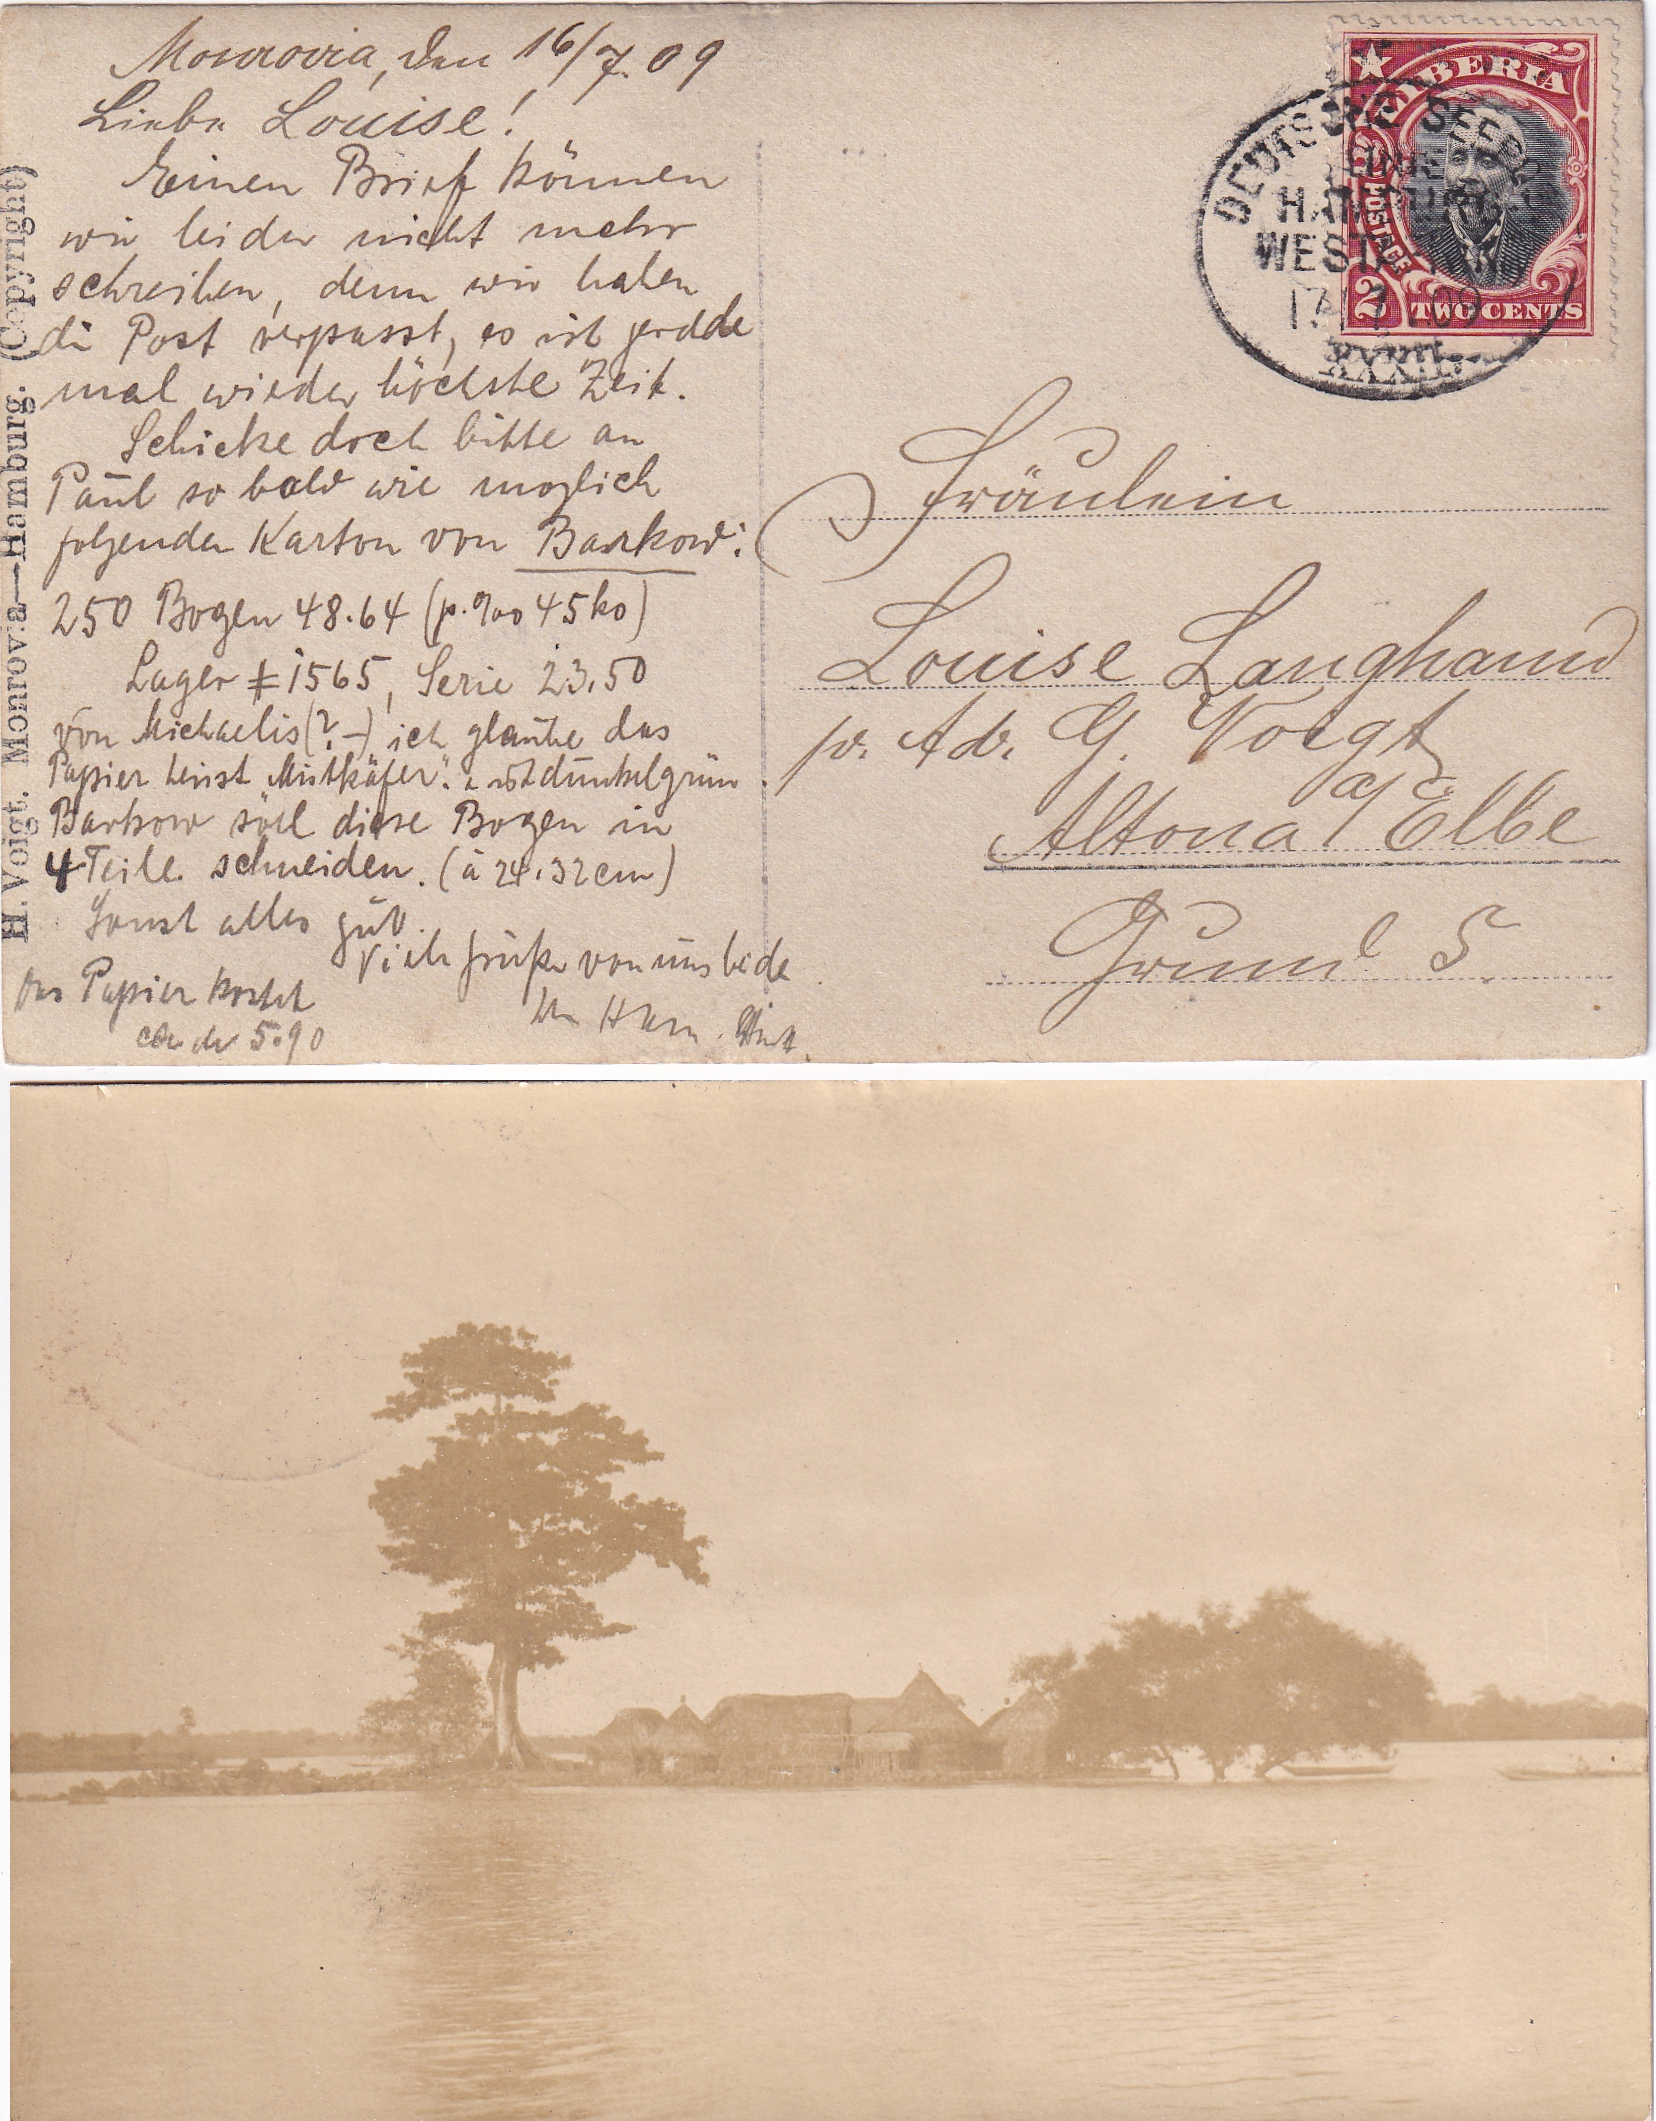 Monrovia, den 16/7.09
Liebe Louise!
Einen Brief können
wir leider nicht mehr
schreiben, denn wir haben
di Post verpasst, es ist gerade
mal wieder höchste Zeit.
Schicke doch bitte an
Paul so bald wie möglich
folgenden Karton von Barkow:
250 Bogen 48.64 (p. %00 45 ko)
Lager # 1565, Serie 23.50
von Michaelis (? –) ich glaube das
Papier heisst „Mistkäfer“. dunkelgrün
Barkow soll diese Bogen in
4 Teile schneiden. (à 24.32 cm)
Sonst alles gut.
Viele Grüße von uns beide
Das Papier kostet
5.90
H. Voigt. Monrovia—Hamburg. (Copyright)
LIBERIA
POSTAGE
2
2
TWO CENTS
DEUTSCHE SEEPO
LINIE
HAMBURG
WESTAFRIKA
17 7 09
XXXIII
Fräulein
Louise Langhand
pr. Adr. G. Voigt
Altona a/ Elbe
Grund 5.